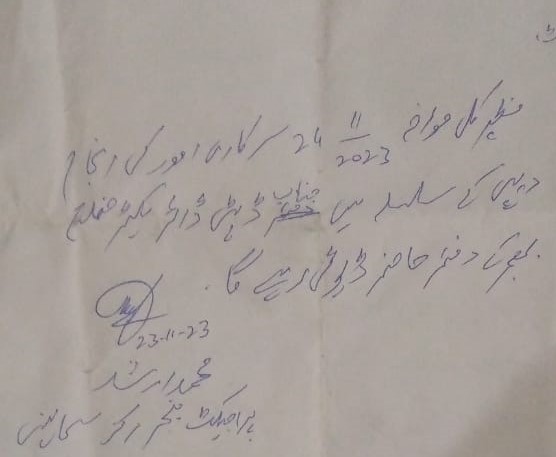 مظہر کل مورخہ 24 11/2023 سرکاری امور کی انجام
دہی کے سلسلہ میں جناب ڈپٹی ڈائریکٹر ضلع
کے دفتر حاضر ڈیوٹی رہے گا۔
23-11-23
محمد ارشد
پراجیکٹ منیجر